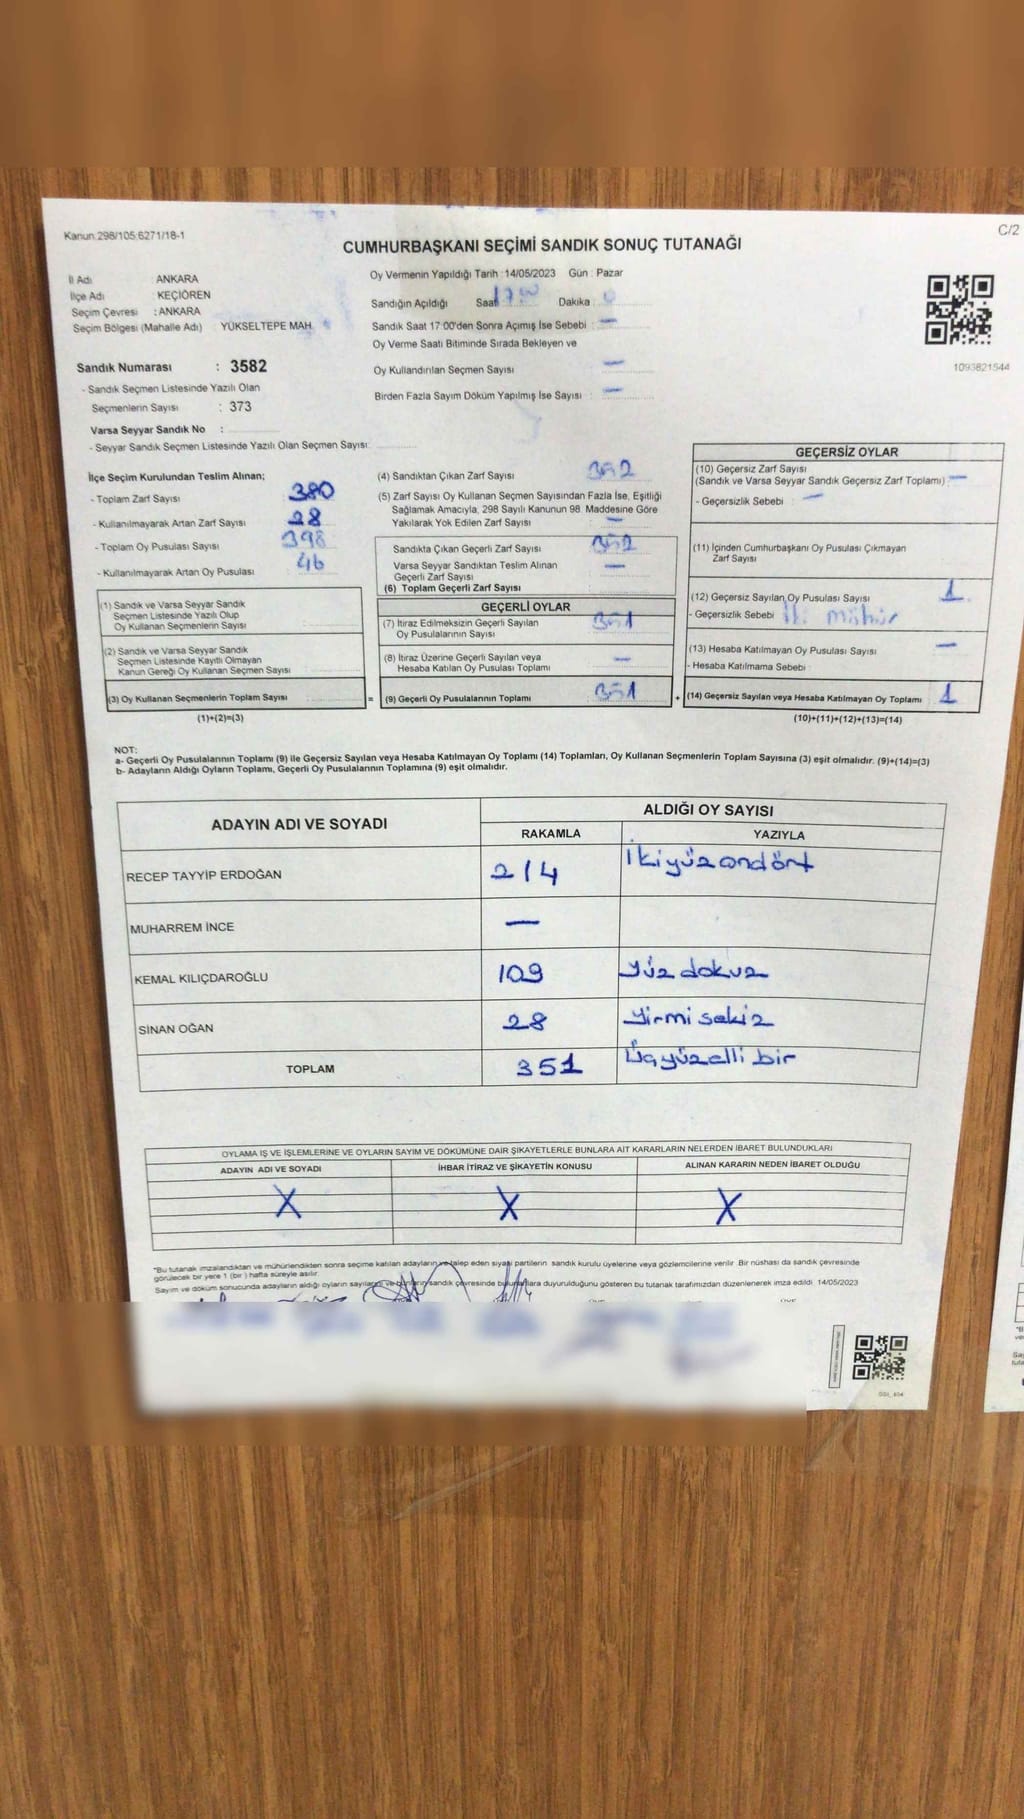 Kanun:298/105-6271/18-1
C/2
CUMHURBAŞKANI SEÇİMİ SANDIK SONUÇ TUTANAĞI
İl Adı : ANKARA
İlçe Adı : KEÇİÖREN
Seçim Çevresi : ANKARA
Seçim Bölgesi (Mahalle Adı) YÜKSELTEPE MAH.
Oy Vermenin Yapıldığı Tarih :14/05/2023 Gün : Pazar
Sandığın Açıldığı Saat 17.00 Dakika : 0
Sandık Saat 17:00'den Sonra Açımış İse Sebebi : —
Oy Verme Saati Bitiminde Sırada Bekleyen ve
Oy Kullandırılan Seçmen Sayısı : —
Birden Fazla Sayım Döküm Yapılmış İse Sayısı : —
1093821544
Sandık Numarası : 3582
- Sandık Seçmen Listesinde Yazılı Olan
Seçmenlerin Sayısı : 373
Varsa Seyyar Sandık No :
- Seyyar Sandık Seçmen Listesinde Yazılı Olan Seçmen Sayısı:
İlçe Seçim Kurulundan Teslim Alınan;
- Toplam Zarf Sayısı : 380
- Kullanılmayarak Artan Zarf Sayısı : 28
- Toplam Oy Pusulası Sayısı : 398
- Kullanılmayarak Artan Oy Pusulası : 46
(1) Sandık ve Varsa Seyyar Sandık
Seçmen Listesinde Yazılı Olup
Oy Kullanan Seçmenlerin Sayısı
(2) Sandık ve Varsa Seyyar Sandık
Seçmen Listesinde Kayıtlı Olmayan
Kanun Gereği Oy Kullanan Seçmen Sayısı
(3) Oy Kullanan Seçmenlerin Toplam Sayısı =
(1)+(2)=(3)
(4) Sandıktan Çıkan Zarf Sayısı 352
(5) Zarf Sayısı Oy Kullanan Seçmen Sayısından Fazla İse, Eşitliği
Sağlamak Amacıyla, 298 Sayılı Kanunun 98. Maddesine Göre
Yakılarak Yok Edilen Zarf Sayısı : —
Sandıkta Çıkan Geçerli Zarf Sayısı 352
Varsa Seyyar Sandıktan Teslim Alınan
Geçerli Zarf Sayısı —
(6) Toplam Geçerli Zarf Sayısı
GEÇERLİ OYLAR
(7) İtiraz Edilmeksizin Geçerli Sayılan
Oy Pusulalarının Sayısı 351
(8) İtiraz Üzerine Geçerli Sayılan veya
Hesaba Katılan Oy Pusulası Toplamı —
(9) Geçerli Oy Pusulalarının Toplamı 351 +
GEÇERSİZ OYLAR
(10) Geçersiz Zarf Sayısı
(Sandık ve Varsa Seyyar Sandık Geçersiz Zarf Toplamı) : —
- Geçersizlik Sebebi : —
(11) İçinden Cumhurbaşkanı Oy Pusulası Çıkmayan
Zarf Sayısı
(12) Geçersiz Sayılan Oy Pusulası Sayısı 1
- Geçersizlik Sebebi : İki mühür
(13) Hesaba Katılmayan Oy Pusulası Sayısı —
- Hesaba Katılmama Sebebi :
(14) Geçersiz Sayılan veya Hesaba Katılmayan Oy Toplamı 1
(10)+(11)+(12)+(13)=(14)
NOT:
a- Geçerli Oy Pusulalarının Toplamı (9) ile Geçersiz Sayılan veya Hesaba Katılmayan Oy Toplamı (14) Toplamları, Oy Kullanan Seçmenlerin Toplam Sayısına (3) eşit olmalıdır. (9)+(14)=(3)
b- Adayların Aldığı Oyların Toplamı, Geçerli Oy Pusulalarının Toplamına (9) eşit olmalıdır.
ADAYIN ADI VE SOYADI
ALDIĞI OY SAYISI
RAKAMLA YAZIYLA
RECEP TAYYİP ERDOĞAN 214 İkiyüzondört
MUHARREM İNCE —
KEMAL KILIÇDAROĞLU 109 Yüzdokuz
SİNAN OĞAN 28 Yirmisekiz
TOPLAM 351 Üçyüzelli bir
OYLAMA İŞ VE İŞLEMLERİNE VE OYLARIN SAYIM VE DÖKÜMÜNE DAİR ŞİKAYETLERLE BUNLARA AİT KARARLARIN NELERDEN İBARET BULUNDUKLARI
ADAYIN ADI VE SOYADI İHBAR İTİRAZ VE ŞİKAYETİN KONUSU ALINAN KARARIN NEDEN İBARET OLDUĞU
X X X
*Bu tutanak imzalandıktan ve mühürlendikten sonra seçime katılan adayların ve talep eden siyasi partilerin sandık kurulu üyelerine veya gözlemcilerine verilir. Bir nüshası da sandık çevresinde
görülecek bir yere 1 (bir) hafta süreyle asılır.
Sayım ve döküm sonucunda adayların aldığı oyların sayıları ve bunların sandık çevresinde bulunanlara duyurulduğunu gösteren bu tutanak tarafımızdan düzenlenerek imza edildi. 14/05/2023